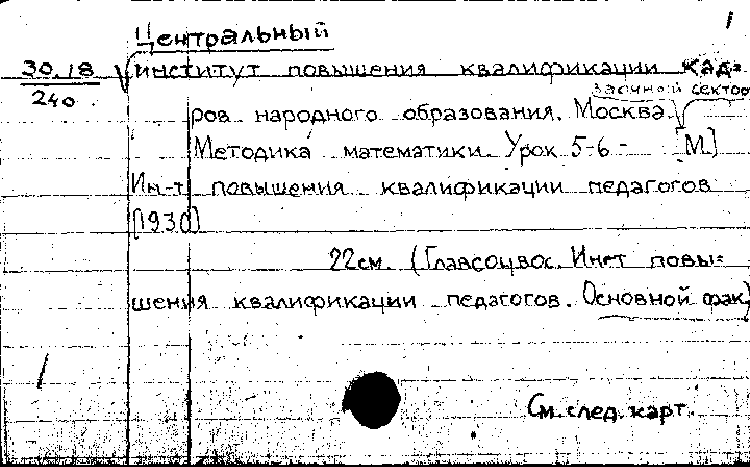 1
Центральный
30.18 институт повышения квалификации кад-
240
заочный сектор
ров народного образования. Москва.
Методика математики. Урок 5-6 - [М.]
Ин-т повышения квалификации педагогов
[1930]
22см. (Главсоцвос. Инст повы-
шения квалификации педагогов. Основной фак)
См. след. карт.